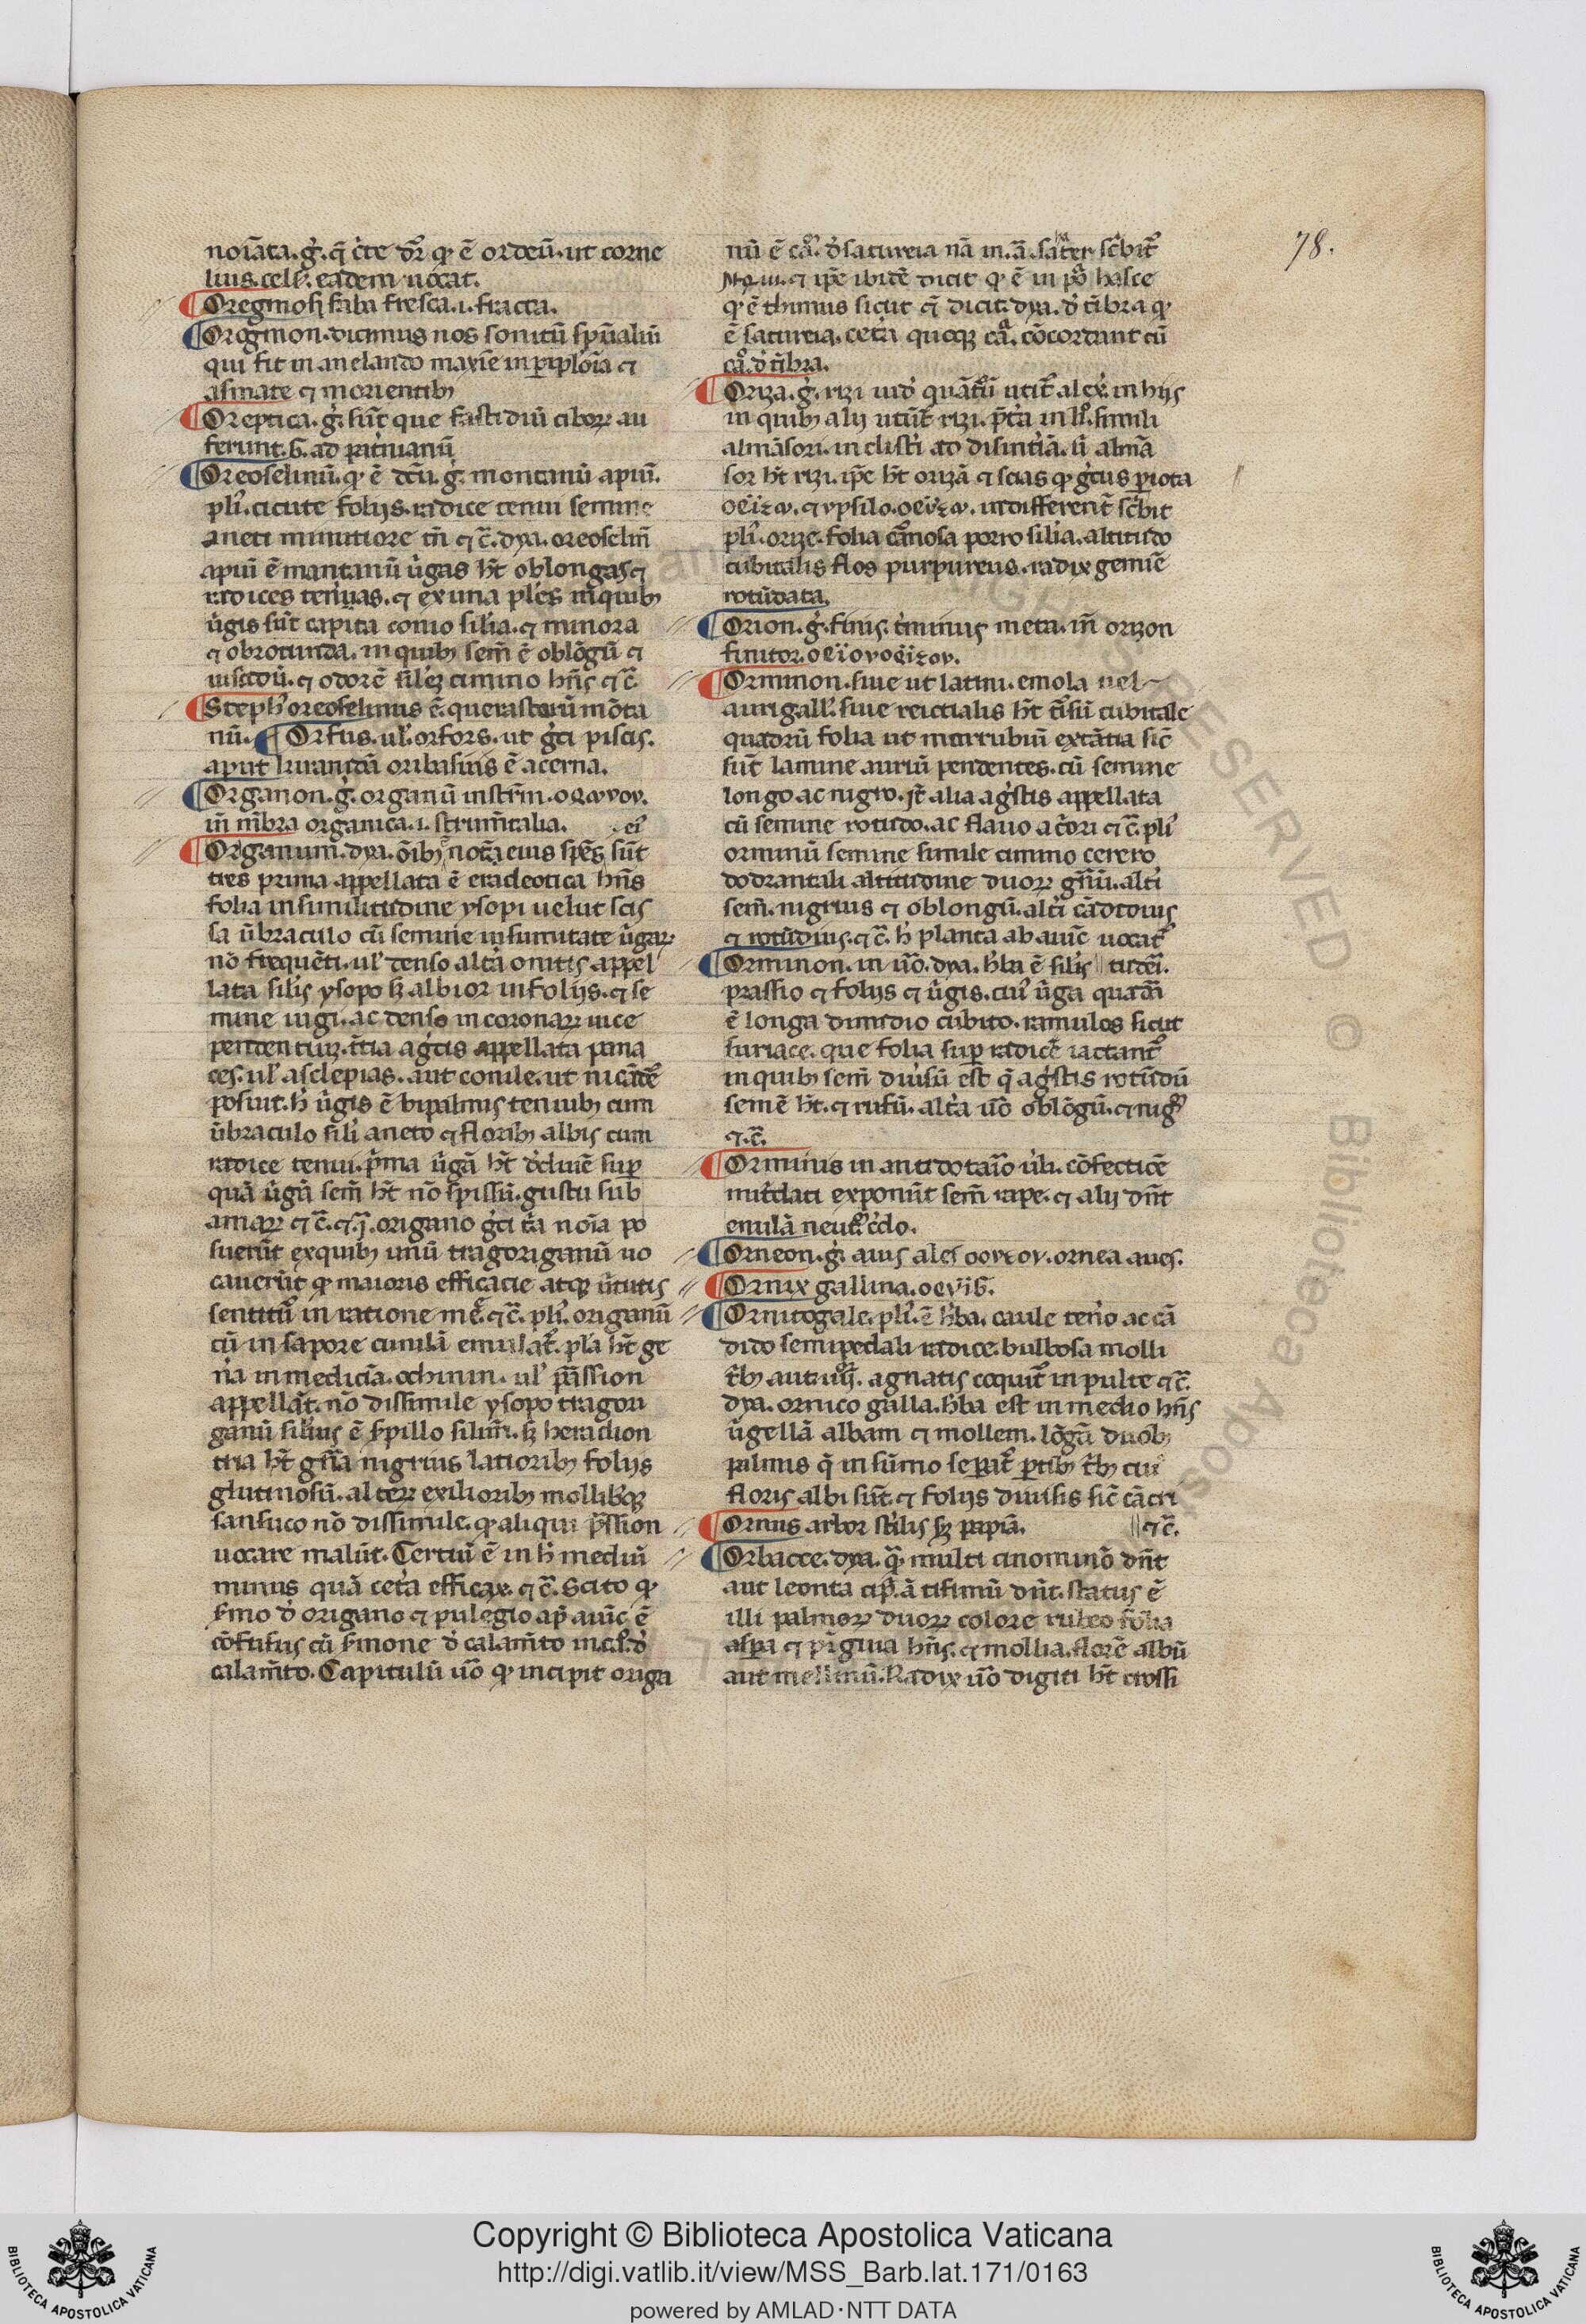 78.
noīata. g̓. q̄ c̓te dr̄ qͥ ē ordeū. ut corne
lius. cels᷒. eadem uocat.
¶ Oregmosi faba fresca .i. fracta.
¶ Orogmon. dicimus nos sonitū sp̄ualiū
qui fit in anelando maxīe in piplōīa ⁊
asmate ⁊ morientibꝫ
¶ Oreptica. g̓. sūt que fastidiū ciboꝝ au
ferunt. ad paternianū
¶ Oreoselinū. qͥ ē dc̄ū. g̓. montanū apiū.
plī. cicute folijs. radice tenui semine
aneti minutiore tn̄ ⁊ c̄. dya. oreoselin̄
apiū ē mantanū ūgas hꝫ oblongas ⁊
radices tenuas. ⁊ ex una ples in quibꝫ
ūgis sūt capita conio silia. ⁊ minora
⁊ obrotunda. in quibꝫ sem̄ ē oblōgū ⁊
⁊ odorē cimino hn̄s ⁊ c̄
¶ Steph᷒ oreoselinus ē. querastorū mōta
nū. ¶ Orfus. ul᷒. orfors. ut g̓ci piscis.
aput liuiandū oribasius ē acerna.
¶ Organon. g̓. organū instrm̄.
in̄ mb̄ra organica .i. strumētalia.
¶ Origanum. dya. ōibꝫ nota eius spēs sūt
tres prima appellata ē eracleotica hn̄s
folia in similitudine ysopi uelut scis
sa ūbraculo cū semine in sumitate ūgaꝝ
nō frequēti. ul᷒ denso altᷓa onitis appel
lata silis ysopo sꝫ albior in folijs. ⁊ se
mine iugi. ac denso in coronaꝝ uice
pendentiuꝫ. t̄tia ag᷒tis appellata pana
ces. ul᷒ asclepias. aut conile. ut nicādē
posuit. h᷒ ūgis ē bipalmis tenuibꝫ cum
ūbraculo sili aneto ⁊ floribꝫ albis cum
radice tenui. p̄ma ūgā hꝫ d̓cliuē sup
quā ūgā sem̄ hꝫ nō spissū. gustu sub
amaꝝ ⁊ c̄. ⁊ origano g̓ci t̓a noīa po
suerūt ex quibꝫ unū tragoriganū uo
cauerūt qͥ maioris efficacie atqꝫ ūtutis
sentitū in ratione me᷒. ⁊ c̄. plī. origanū
cū in sapore cunilā emulat᷒. pl᷒a hꝫ ge
n̄a in medicīa. ochinin. ul᷒ prassion
appellāt. nō dissimile ysopo tragori
ganū silius ē spillo silūri. sꝫ heraclion
tria hꝫ gn̄a nigrius latioribꝫ folijs
glutinosū. alteꝝ exilioribꝫ mollibꝫqꝫ
sansuco nō dissimile. qͥ aliqui prassion
uocare malūt. Tertiū ē int̓ h᷒ mediū
minus quā cet̓a efficax. ⁊ c̄. Scito qͥ
s̓mo d̓ origano ⁊ pulegio ap̄ auic᷒ ē
cōfusus cū s̓mone d̓ calamēto in ca᷒. d̓
calamēto. Capitulū u᷒o qͥ incipit origa
nū ē ca᷒. d̓ satureia nā in. a. sater sc̄bit᷒
⁊ ip̄e ibidē dicit qͥ ē in pō hasce
qͥ ē thimus sicut ⁊ dicit. dya. d̓ tībra qͥ
ē satureia. cet̓a quoqꝫ ca᷒. cōcordant cū
ca᷒. d̓ tībra.
¶ Oriza. g̓. rizi uid̓ quātū utit᷒ alex᷒. in hijs
in quibꝫ alij utūt᷒ rizi. p̄t̓a in li᷒. simili
almāsori. in clist̓i ad disint̓iā. ubi almā
sor hꝫ rizi. ip̄e hꝫ orizā ⁊ scias qͥ g̓cus p iota
⁊ ypsilo. indifferent̄ sc̄bit
plī. orize. folia carnosa porro silia. altitudo
cubitalis flos purpureus. radix gemīe
rotūdata.
¶ Orion. g̓. finis. t̓minus meta. in̄ orizon
finitor.
¶ Orminon. siue ut latini. emola uel
aurigall᷒. siue reictialis hꝫ t̓sū cubitale
quadrū folia ut marrubiū extātia sic̄
sūt lamine auriū pendentes. cū semine
longo ac nigro. ⁊ alia ag᷒stis appellata
cū semine rotūdo. ac flauo aciori ⁊ c̄. plī
orminū semine simile cimino cetero
dodrantali altitudine duoꝝ gn̄ū. alt̓i
sem̄. nigrius ⁊ oblongū. alt̓i cādidius
⁊ rotūdius. ⁊ c̄. h᷒ planta ab auic᷒ uocat᷒
¶ Orminon. in u᷒o. dya. h᷒ba ē silis
prassio ⁊ folijs ⁊ ūgis. cui᷒ ūga quadā
ē longa dimidio cubito. ramulos sicut
furiace. que folia sup radicē iactant᷒
in quibꝫ sem̄ diuisū est q̄ ag᷒stis rotūdū
semē hꝫ. ⁊ rufū. alt̓a u᷒o oblōgū. ⁊ nig᷒
⁊ c̄.
¶ Orminis in antidotaīo ub᷒i. cōfectiōē
mitdati exponūt sem̄ rape. ⁊ alij dn̄t
emulā neut᷒ c̓do.
¶ Orneon. g̓. auis ales ornea aues.
¶ Ornix gallina.
¶ Ornitogale. plī. ē h᷒ba. caule ten̓o ac cā
dido semipedali radice. bulbosa molli
t̓bꝫ aut iiij. agnatis coquit᷒ in pulte ⁊ c̄.
dya. ornico galla. h᷒ba est in medio hn̄s
ūgellā albam ⁊ mollem. lōgā duobꝫ
palmis q̄ in sūmo sepat᷒ ptibꝫ t̓bꝫ cui᷒
floris albi sūt. ⁊ folijs diuisis sic̄ cācri
¶ Ornus arbor st̓ilis sꝫ papiā. ⁊ c̄.
¶ Orbacce. dya. qᷓ multi cinominō dn̄t
aut leonta cip᷒. a tisimū dn̄t. status ē
illi palmoꝝ duoꝝ colore rubeo folia
aspa ⁊ pīguia hn̄s. ⁊ mollia. florē albū
aut mellinū. Radix u᷒o digiti hꝫ crossi
BIBLIOTECA APOSTOLICA VATICANA
Copyright © Biblioteca Apostolica Vaticana
http://digi.vatlib.it/view/MSS_Barb.lat.171/0163
powered by AMLAD·NTT DATA
BIBLIOTECA APOSTOLICA VATICANA